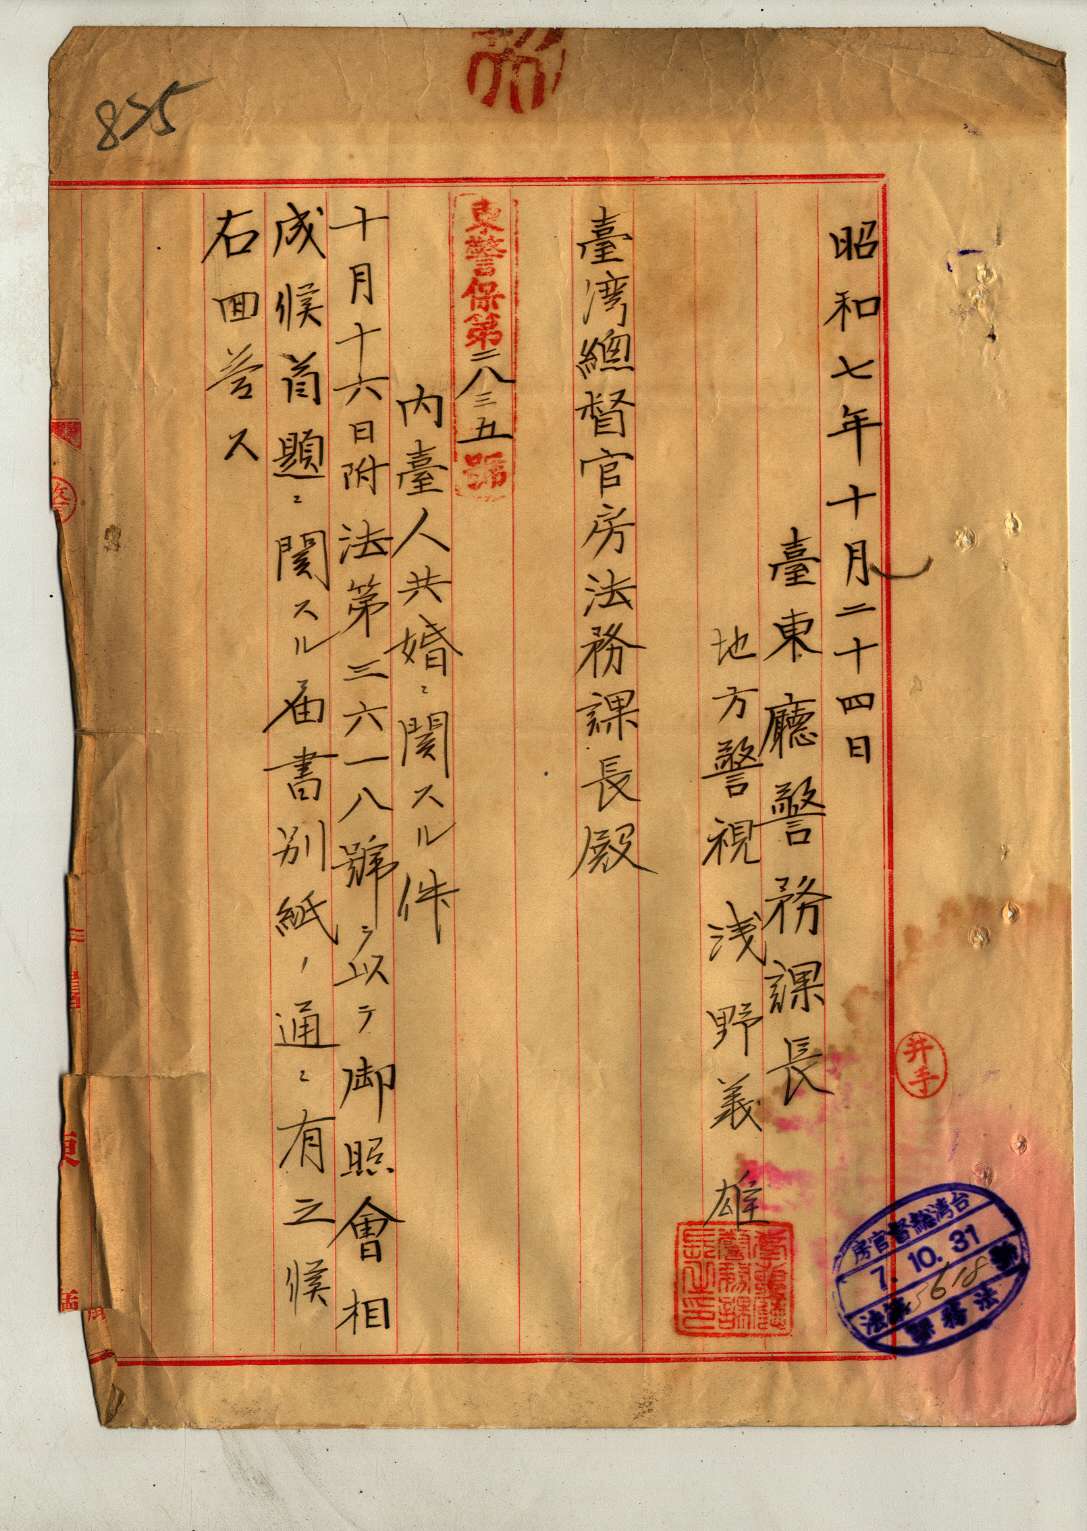 825
昭和七年十月二十四日
臺東廳警務課長
地方警視 浅野義雄
臺湾總督官房法務課長殿
東警保第二八三五號
内臺人共婚ニ関スル件
十月十六日附法第三六一八號ヲ以テ御照會相
成候首題ニ関スル届書別紙ノ通ニ有之候
右回答ス
井手
台湾総督官房
7.10.31
法第5618號
法務課